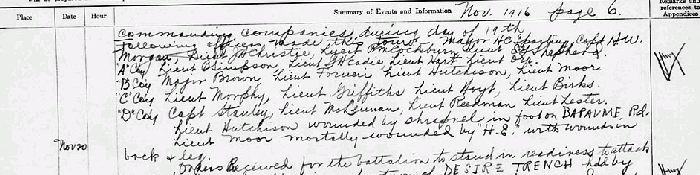 Place Date Hour Summary of Events and Information Nov. 1916 page 6.
Remarks and references to Appendices
Commanding Companies, during day of 19th,
following officers made the tour. Major Capt. S.W.
Morgan, Lieut Christie, Lieut Lieut
A Coy Lieut Simpson, Lieut Eadie, Lieut Hart, Lieut
B Coy Major Brown, Lieut Lieut Hutchison, Lieut Moor
C Coy Lieut Morphy, Lieut Griffiths Lieut Hoyt, Lieut Birks.
D Coy Capt Stanley, Lieut McLennan, Lieut Peerman Lieut Lester.
Lieut Hutchison wounded by shrapnel in foot on BAPAUME Rd.
Lieut Moor mortally wounded by "H.E." with wounds in
Nov 20 back & leg.
Orders Received for the battalion to stand in readiness to attack
of DESIRE TRENCH held by